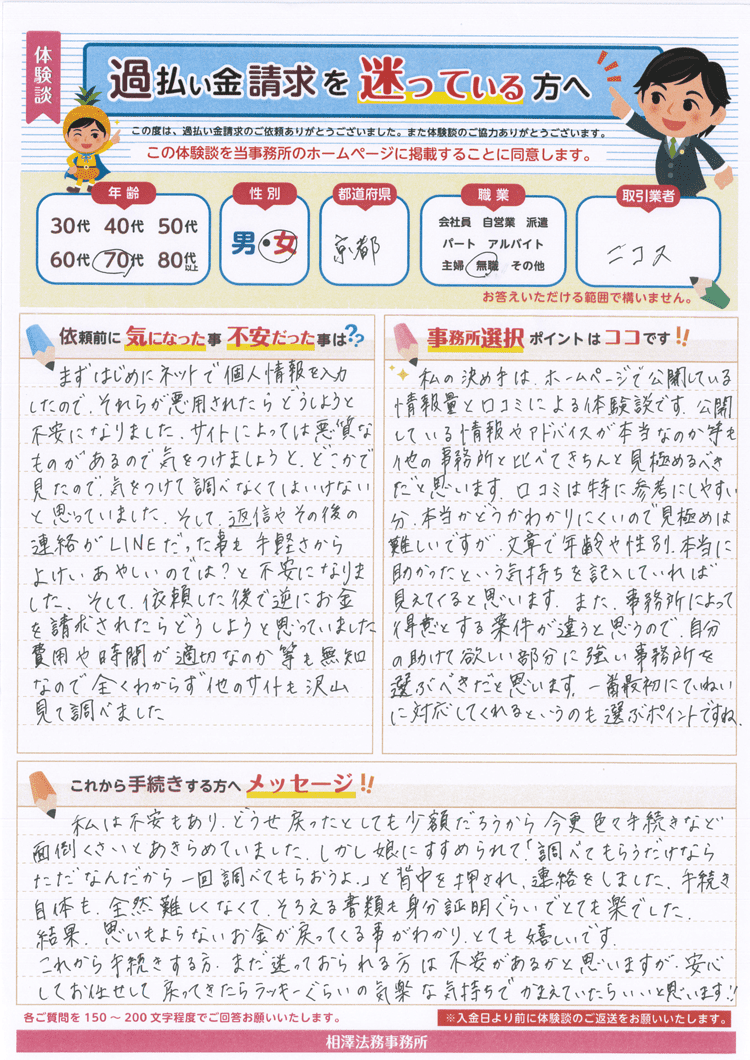 体験談
過払い金請求を迷っている方へ
この度は、過払い金請求のご依頼ありがとうございました。また体験談のご協力ありがとうございます。
この体験談を当事務所のホームページに掲載することに同意します。
年齢
30代 40代 50代
60代 70代 80代以上
性別
男・女
都道府県
京都
職業
会社員 自営業 派遣
パート アルバイト
主婦 無職 その他
取引業者
ニコス
お答えいただける範囲で構いません。
依頼前に気になった事 不安だった事は??
まずはじめにネットで個人情報を入力
したので、それらが悪用されたらどうしようと
不安になりました。サイトによっては悪質な
ものがあるので気をつけましょうと、どこかで
見たので、気をつけて調べなくてはいけない
と思っていました。そして、返信やその後の
連絡がLINEだった事も手軽さから
よけいあやしいのでは?と不安になりま
した。そして、依頼した後で逆にお金
を請求されたらどうしようと思っていました
費用や時間が適切なのか等も無知
なので全くわからず他のサイトも沢山
見て調べました
事務所選択ポイントはココです!!
私の決め手は、ホームページで公開している
情報量と口コミによる体験談です。公開
している情報やアドバイスが本当なのか等も
他の事務所と比べてきちんと見極めるべき
だと思います。口コミは特に参考にしやすい
分、本当かどうかわかりにくいので見極めは
難しいですが、文章で年齢や性別、本当に
助かったという気持ちを記入していれば
見えてくると思います。また、事務所によって
得意とする案件が違うと思うので、自分
の助けて欲しい部分に強い事務所を
選ぶべきだと思います。一番最初にていねい
に対応してくれるというのも選ぶポイントですね。
これから手続きする方へメッセージ!!
私は不安もあり、どうせ戻ったとしても少額だろうから今更色々手続きなど
面倒くさいとあきらめていました。しかし娘にすすめられて「調べてもらうだけなら
ただなんだから一回調べてもらおうよ。」と背中を押され、連絡をしました。手続き
自体も、全然難しくなくて、そろえる書類も身分証明ぐらいでとても楽でした。
結果、思いもよらないお金が戻ってくる事がわかり、とても嬉しいです。
これから手続きする方、まだ迷っておられる方は不安があるかと思いますが、安心
してお任せして戻ってきたらラッキーぐらいの気楽な気持ちでかまえていたらいいと思います!!
各ご質問を150~200文字程度でご回答お願いいたします。
※入金日より前に体験談のご返送をお願いいたします。
相澤法務事務所